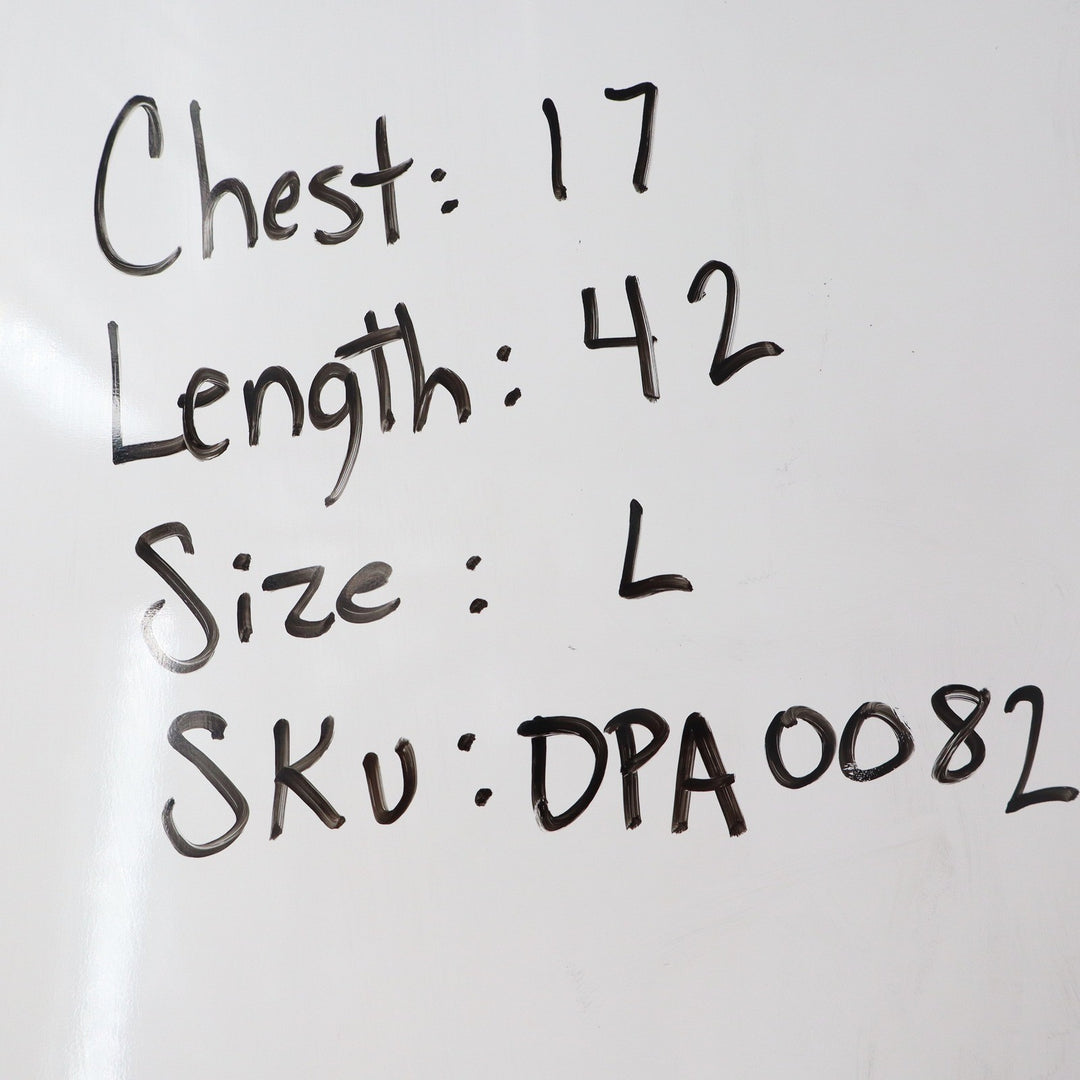 Chest: 17
Length: 42
Size: L
SKU: DPA0082